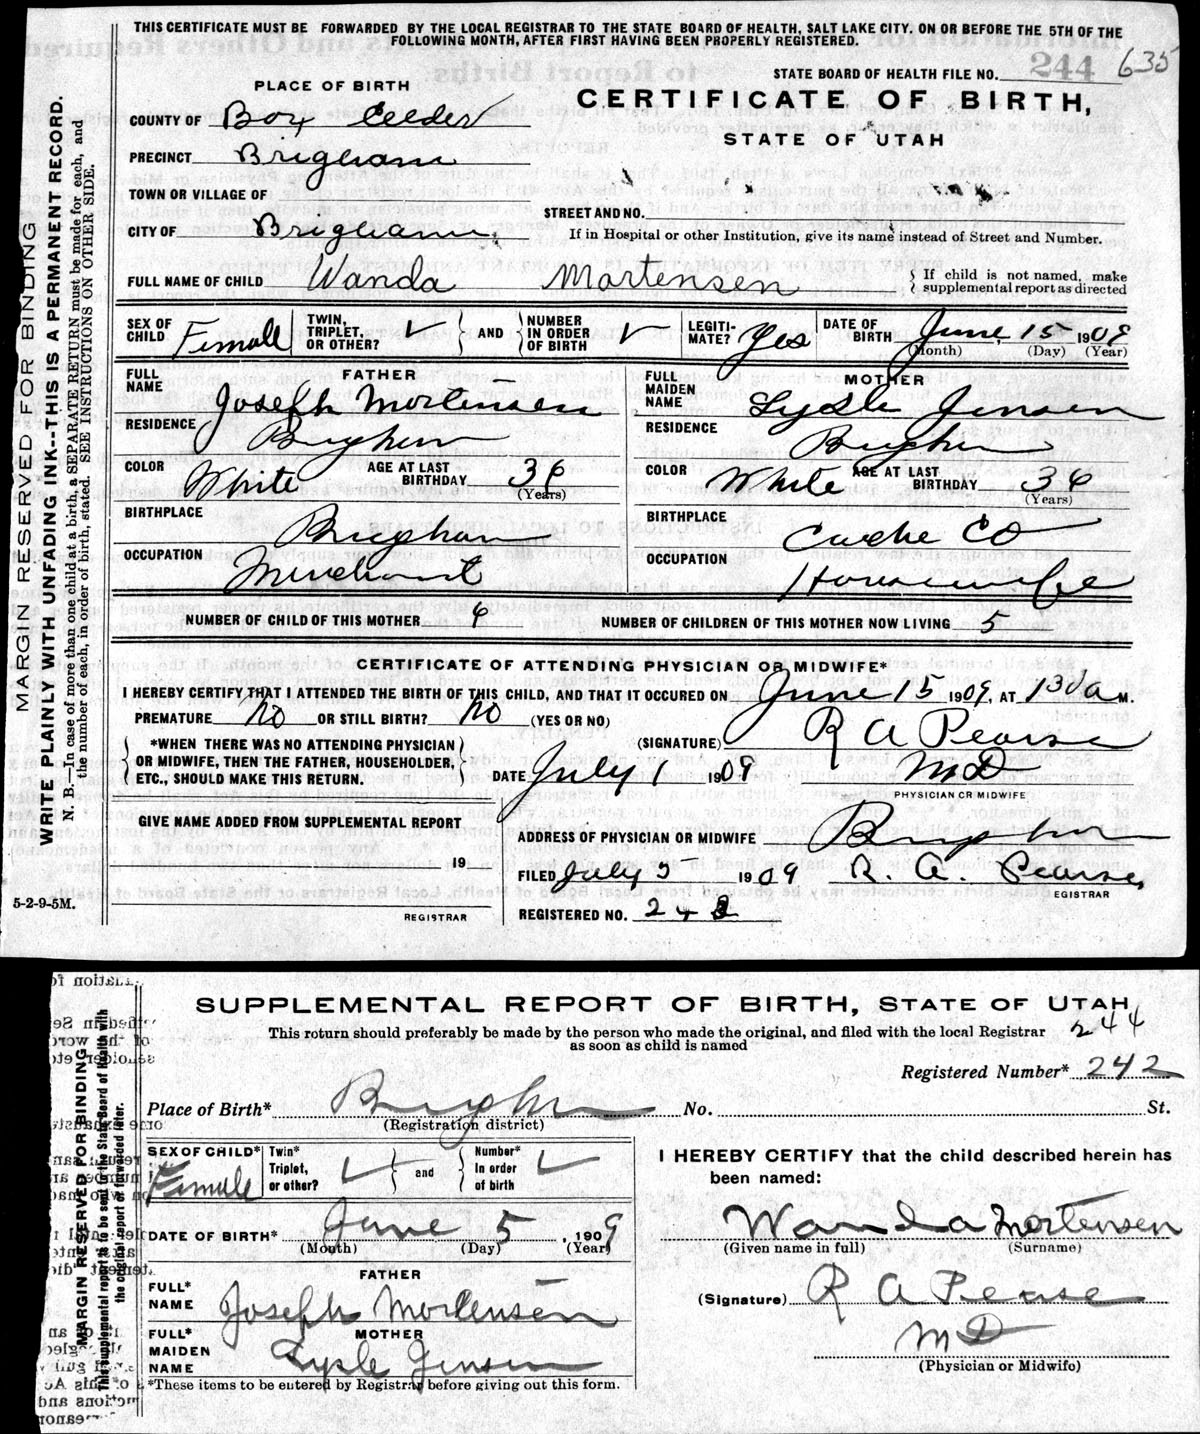 THIS CERTIFICATE MUST BE FORWARDED BY THE LOCAL REGISTRAR TO THE STATE BOARD OF HEALTH, SALT LAKE CITY. ON OR BEFORE THE 5TH OF THE
FOLLOWING MONTH, AFTER FIRST HAVING BEEN PROPERLY REGISTERED.
STATE BOARD OF HEALTH FILE NO. 244 635
PLACE OF BIRTH
CERTIFICATE OF BIRTH,
STATE OF UTAH
COUNTY OF Box Elder
PRECINCT Brigham
TOWN OR VILLAGE OF
STREET AND NO.
CITY OF Brigham,
If in Hospital or other Institution, give its name instead of Street and Number.
FULL NAME OF CHILD Wanda Mortensen
If child is not named, make
supplemental report as directed
SEX OF CHILD Female
TWIN, TRIPLET, OR OTHER? ✓ AND NUMBER IN ORDER OF BIRTH ✓
LEGITI-MATE? Yes
DATE OF BIRTH June, 15 1909
(Month) (Day) (Year)
FATHER
FULL NAME Joseph Mortensen
RESIDENCE Brigham
COLOR White AGE AT LAST BIRTHDAY 36
(Years)
BIRTHPLACE Brigham
OCCUPATION Merchant
MOTHER
FULL MAIDEN NAME Lysle Jensen
RESIDENCE Brigham
COLOR White AGE AT LAST BIRTHDAY 36
(Years)
BIRTHPLACE Cache CO
OCCUPATION Housewife
NUMBER OF CHILD OF THIS MOTHER 6 NUMBER OF CHILDREN OF THIS MOTHER NOW LIVING 5
CERTIFICATE OF ATTENDING PHYSICIAN OR MIDWIFE*
I HEREBY CERTIFY THAT I ATTENDED THE BIRTH OF THIS CHILD, AND THAT IT OCCURED ON June 15 1909, AT 130 a M.
PREMATURE No OR STILL BIRTH? No (YES OR NO)
*WHEN THERE WAS NO ATTENDING PHYSICIAN
OR MIDWIFE, THEN THE FATHER, HOUSEHOLDER,
ETC., SHOULD MAKE THIS RETURN.
(SIGNATURE) R A Pearse
MD
PHYSICIAN OR MIDWIFE
DATE July 1 1909
GIVE NAME ADDED FROM SUPPLEMENTAL REPORT
19
REGISTRAR
ADDRESS OF PHYSICIAN OR MIDWIFE Brigham
FILED July 5 1909 R. A. Pearse,
EGISTRAR
REGISTERED NO. 242
5-2-9-5M.
MARGIN RESERVED FOR BINDING
WRITE PLAINLY WITH UNFADING INK--THIS IS A PERMANENT RECORD.
N. B.—In case of more than one child at a birth, a SEPARATE RETURN must be made for each, and
the number of each, in order of birth, stated. SEE INSTRUCTIONS ON OTHER SIDE.
SUPPLEMENTAL REPORT OF BIRTH, STATE OF UTAH
This return should preferably be made by the person who made the original, and filed with the local Registrar
as soon as child is named
244
Registered Number* 242
Place of Birth* Brigham No. St.
(Registration district)
SEX OF CHILD* Female
Twin* Triplet, or other? ✓ and Number* In order of birth ✓
DATE OF BIRTH* June 5, 1909
(Month) (Day) (Year)
FATHER
FULL* NAME Joseph Mortensen
MOTHER
FULL* MAIDEN NAME Lysle Jensen
*These items to be entered by Registrar before giving out this form.
I HEREBY CERTIFY that the child described herein has
been named:
Wanda Mortensen
(Given name in full) (Surname)
(Signature) R A Pearse
MD
(Physician or Midwife)
MARGIN RESERVED FOR BINDING.
This supplemental report is to be sent to the State Board of Health with
the original report or forwarded later.